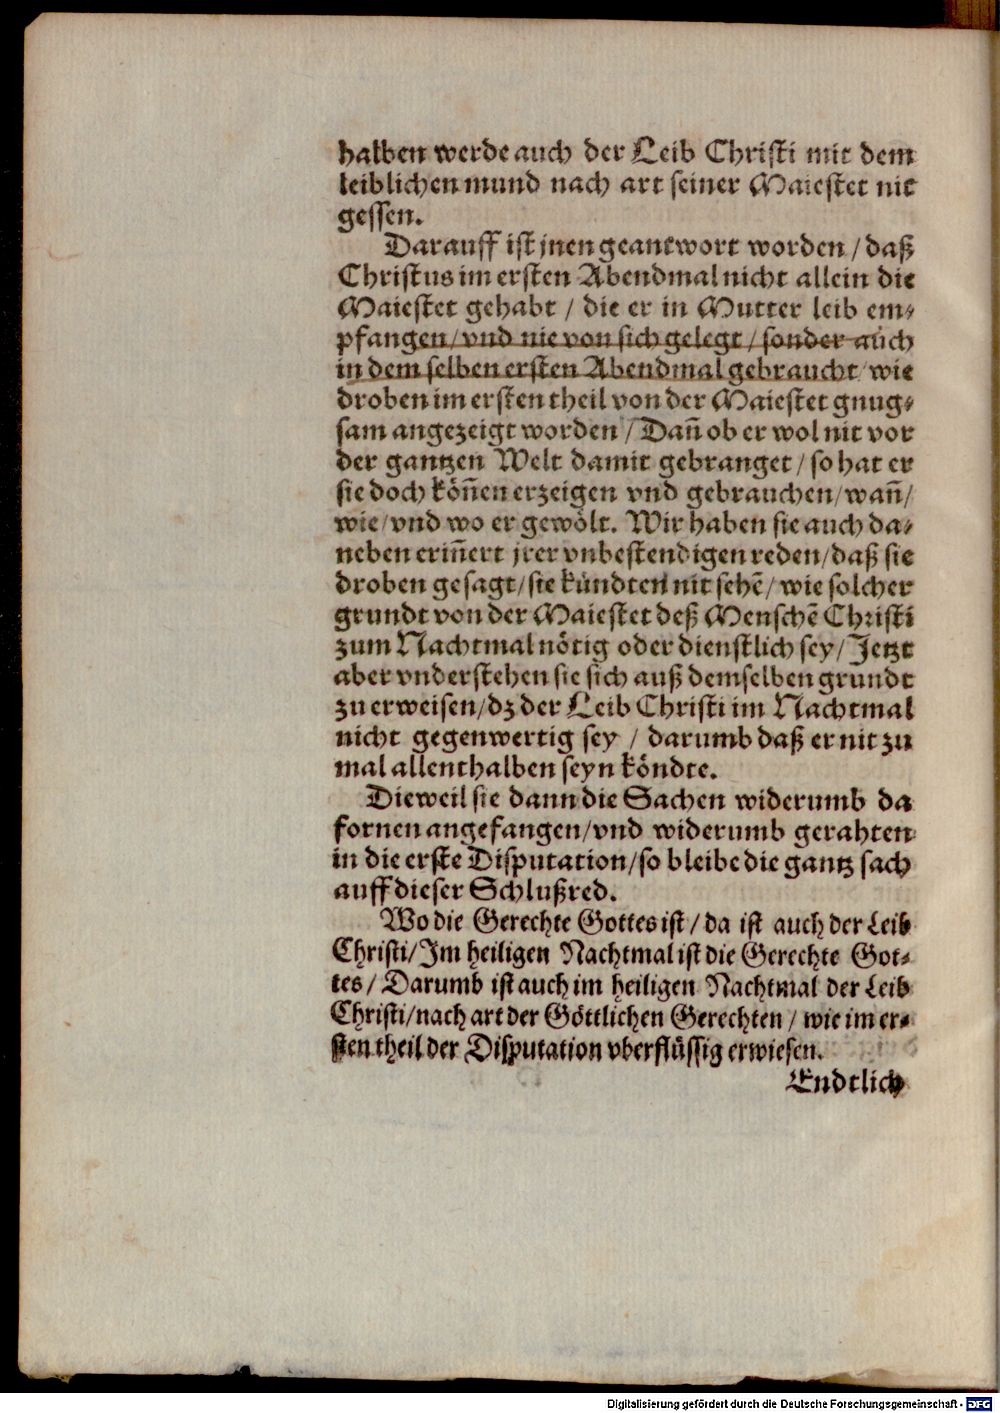 halben werde auch der Leib Christi mit dem
leiblichen mund nach art seiner Maiestet nit
gessen.
Darauff ist jnen geantwort worden / daß
Christus im ersten Abendmal nicht allein die
Maiestet gehabt / die er in Mutter leib em⸗
pfangen / vnd nie von sich gelegt / sonder auch
in dem selben ersten Abendmal gebraucht / wie
droben im ersten theil von der Maiestet gnug⸗
sam angezeigt worden / Dañ ob er wol nit vor
der gantzen Welt damit gebranget / so hat er
sie doch köñen erzeigen vnd gebrauchen / wañ /
wie / vnd wo er gewölt. Wir haben sie auch da⸗
neben eriñert jrer vnbestendigen reden / daß sie
droben gesagt / sie kündten nit sehẽ / wie solcher
grundt von der Maiestet deß Menschẽ Christi
zum Nachtmal nötig oder dienstlich sey / Jetzt
aber vnderstehen sie sich auß demselben grundt
zu erweisen / dz der Leib Christi im Nachtmal
nicht gegenwertig sey / darumb daß er nit zu
mal allenthalben seyn köndte.
Dieweil sie dann die Sachen widerumb da
fornen angefangen / vnd widerumb gerahten
in die erste Disputation / so bleibe die gantz sach
auff dieser Schlußred.
Wo die Gerechte Gottes ist / da ist auch der Leib
Christi / Im heiligen Nachtmal ist die Gerechte Got⸗
tes / Darumb ist auch im heiligen Nachtmal der Leib
Christi / nach art der Göttlichen Gerechten / wie im er⸗
sten theil der Disputation vberflüssig erwiesen.
Endtlich
Digitalisierung gefördert durch die Deutsche Forschungsgemeinschaft - DFG